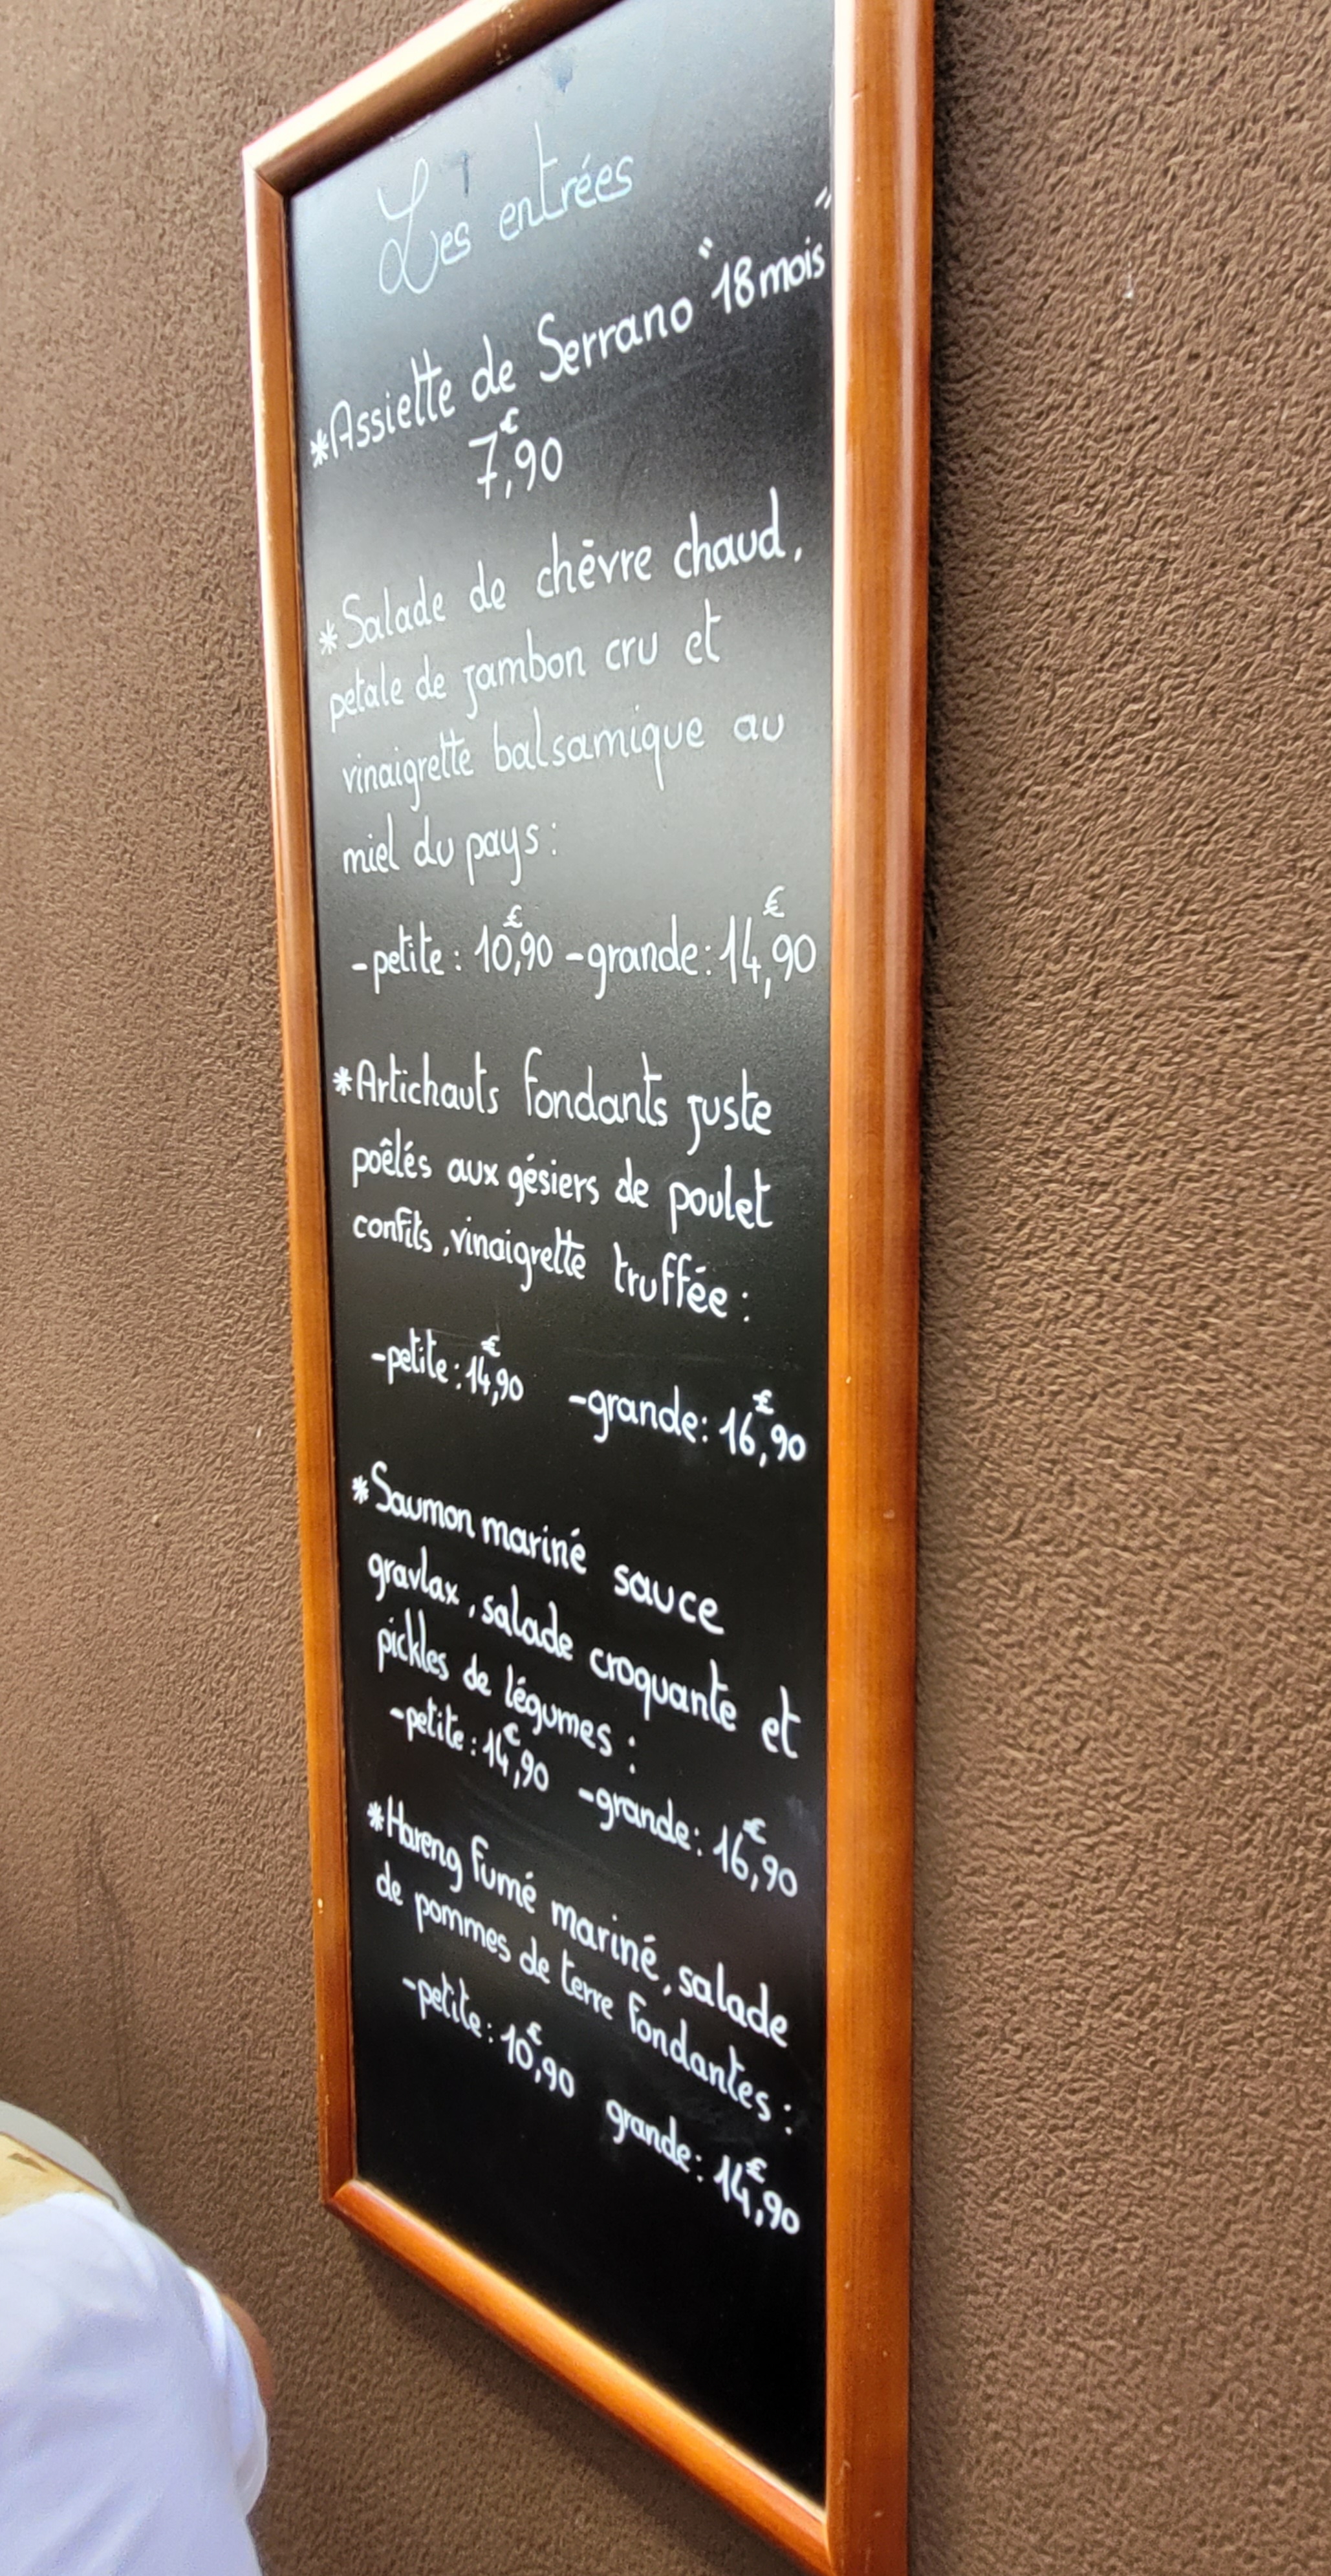 Les entrées
*Assiette de Serrano "18 mois"
7,90€
*Salade de chèvre chaud,
petale de jambon cru et
vinaigrette balsamique au
miel du pays :
-petite : 10,90€ -grande : 14,90€
*Artichauts fondants juste
poêlés aux gésiers de poulet
confits, vinaigrette truffée :
-petite : 14,90€ -grande : 16,90€
*Saumon mariné sauce
gravlax, salade croquante et
pickles de légumes :
-petite : 14,90€ -grande : 16,90€
*Hareng fumé mariné, salade
de pommes de terre fondantes :
-petite : 10,90€ grande : 14,90€